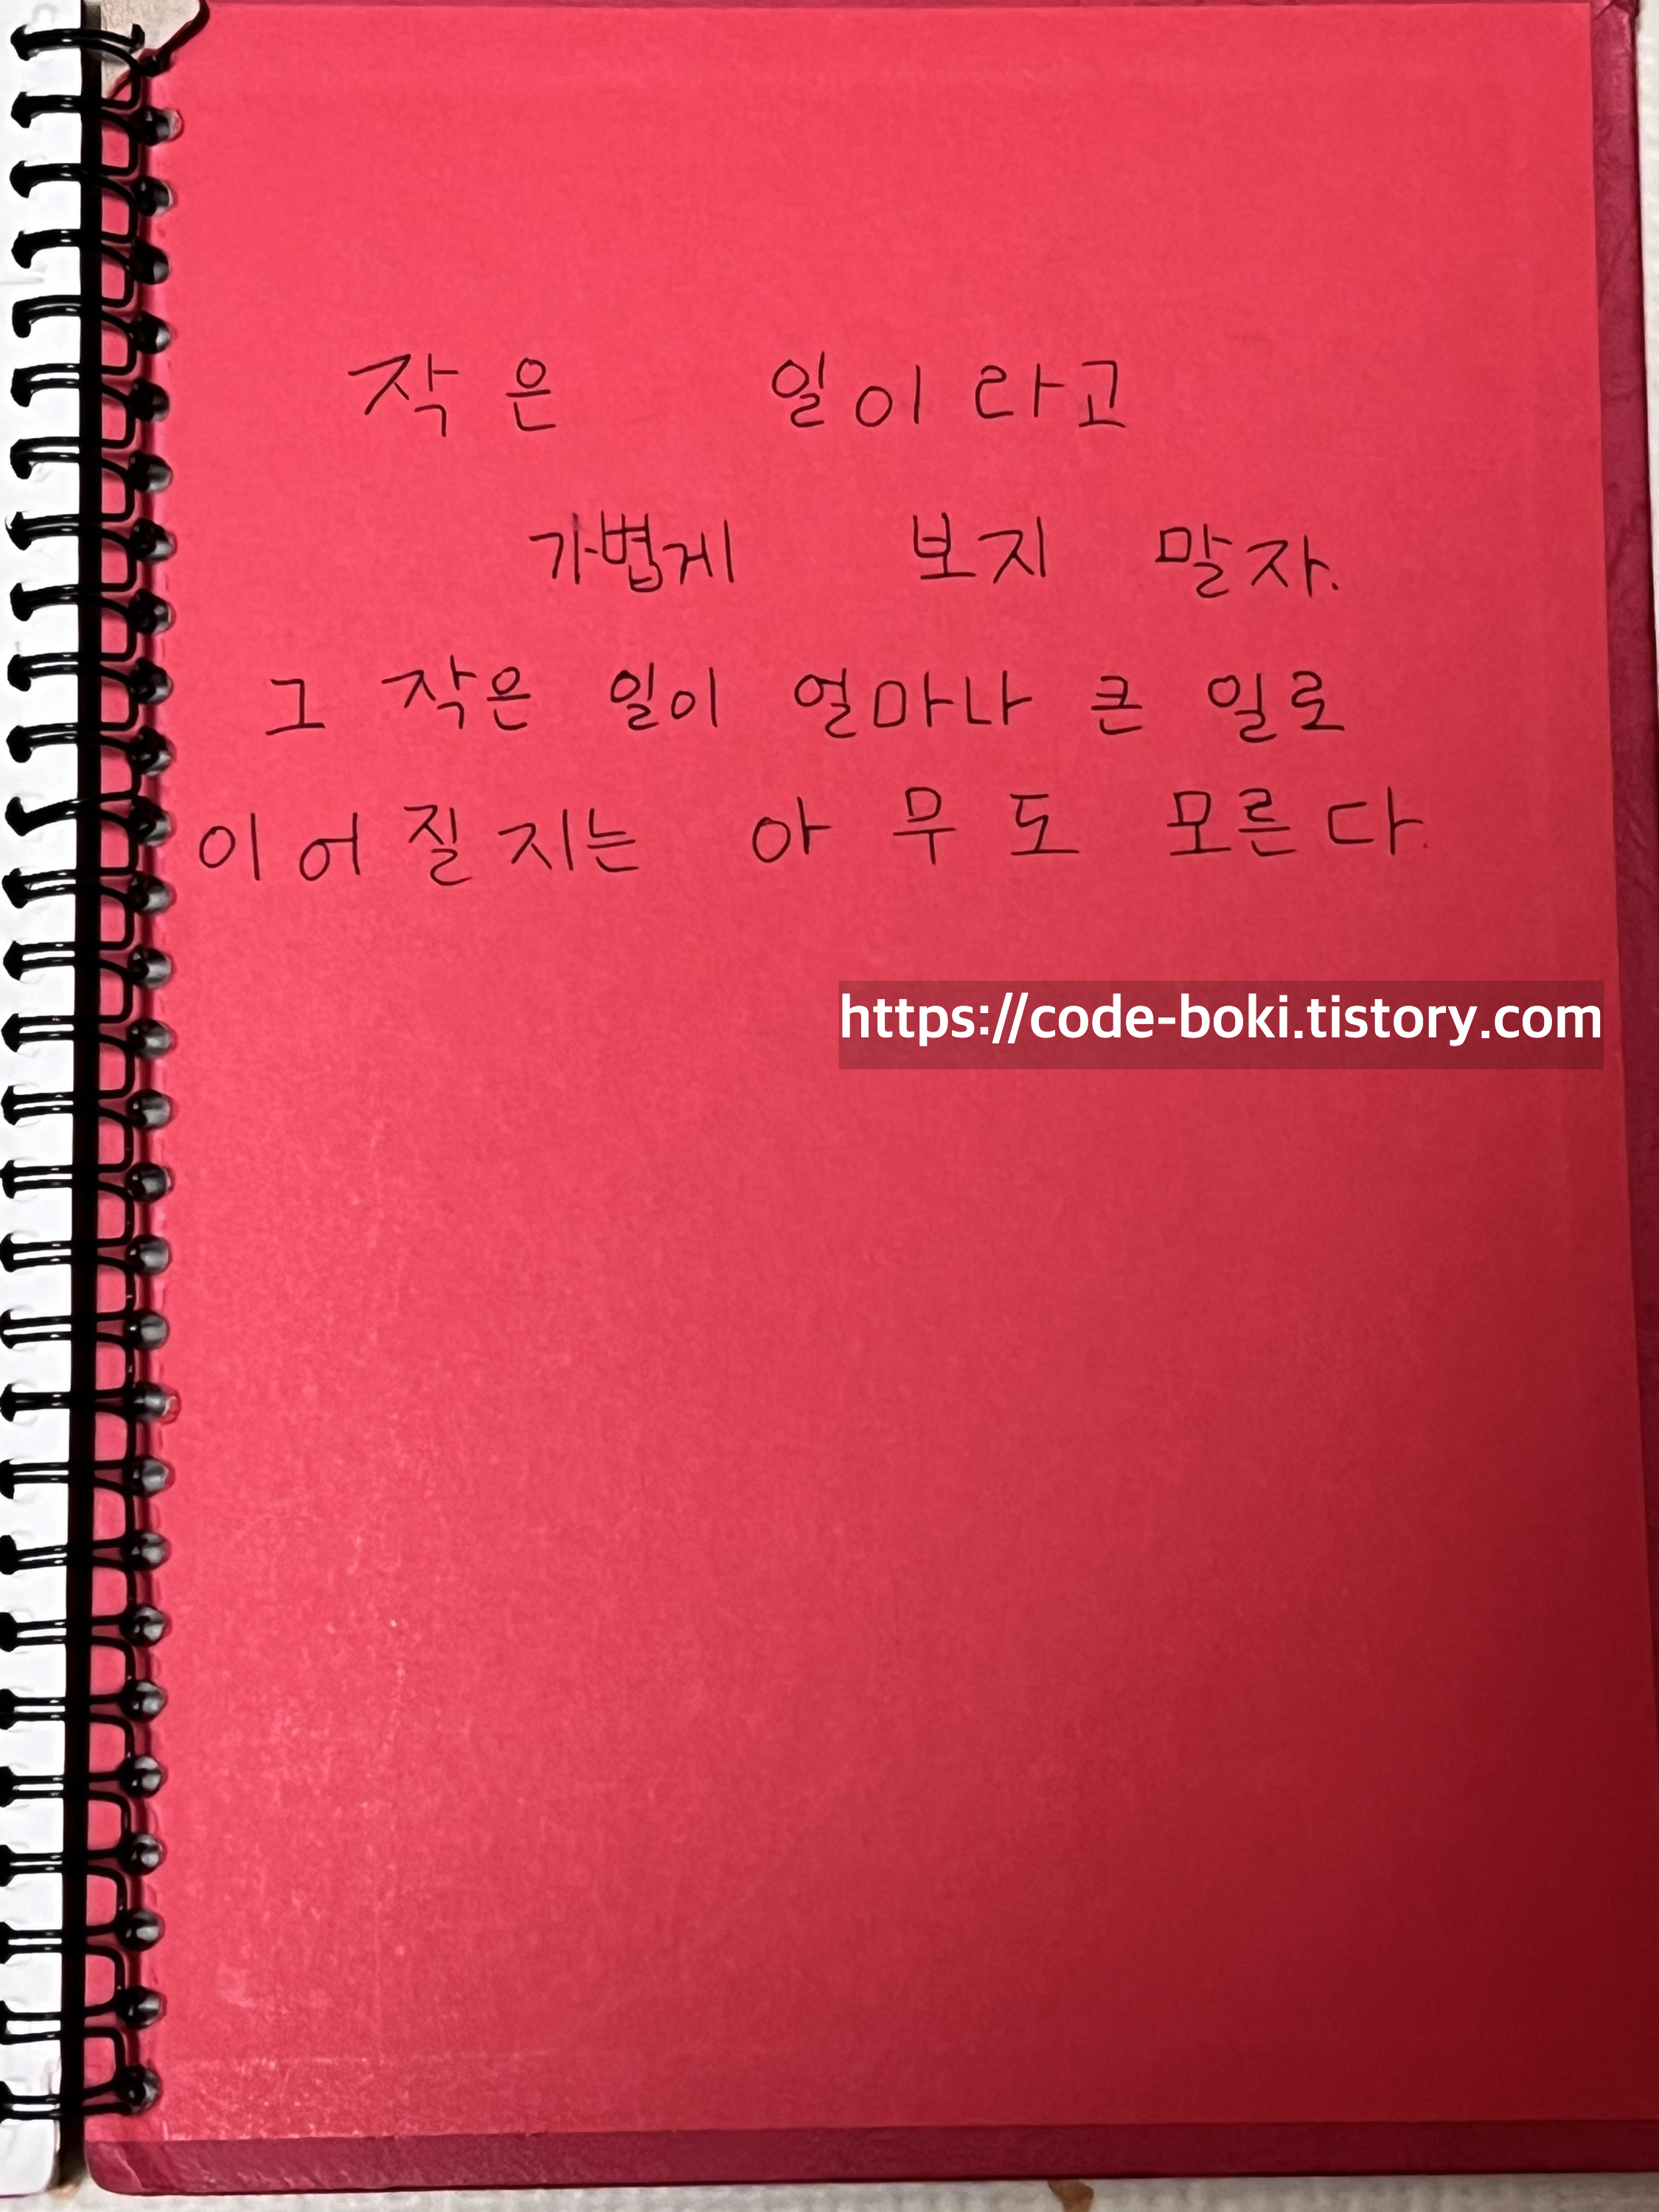 작은 일이라고
가볍게 보지 말자.
그 작은 일이 얼마나 큰 일로
이어질지는 아무도 모른다.
https://code-boki.tistory.com